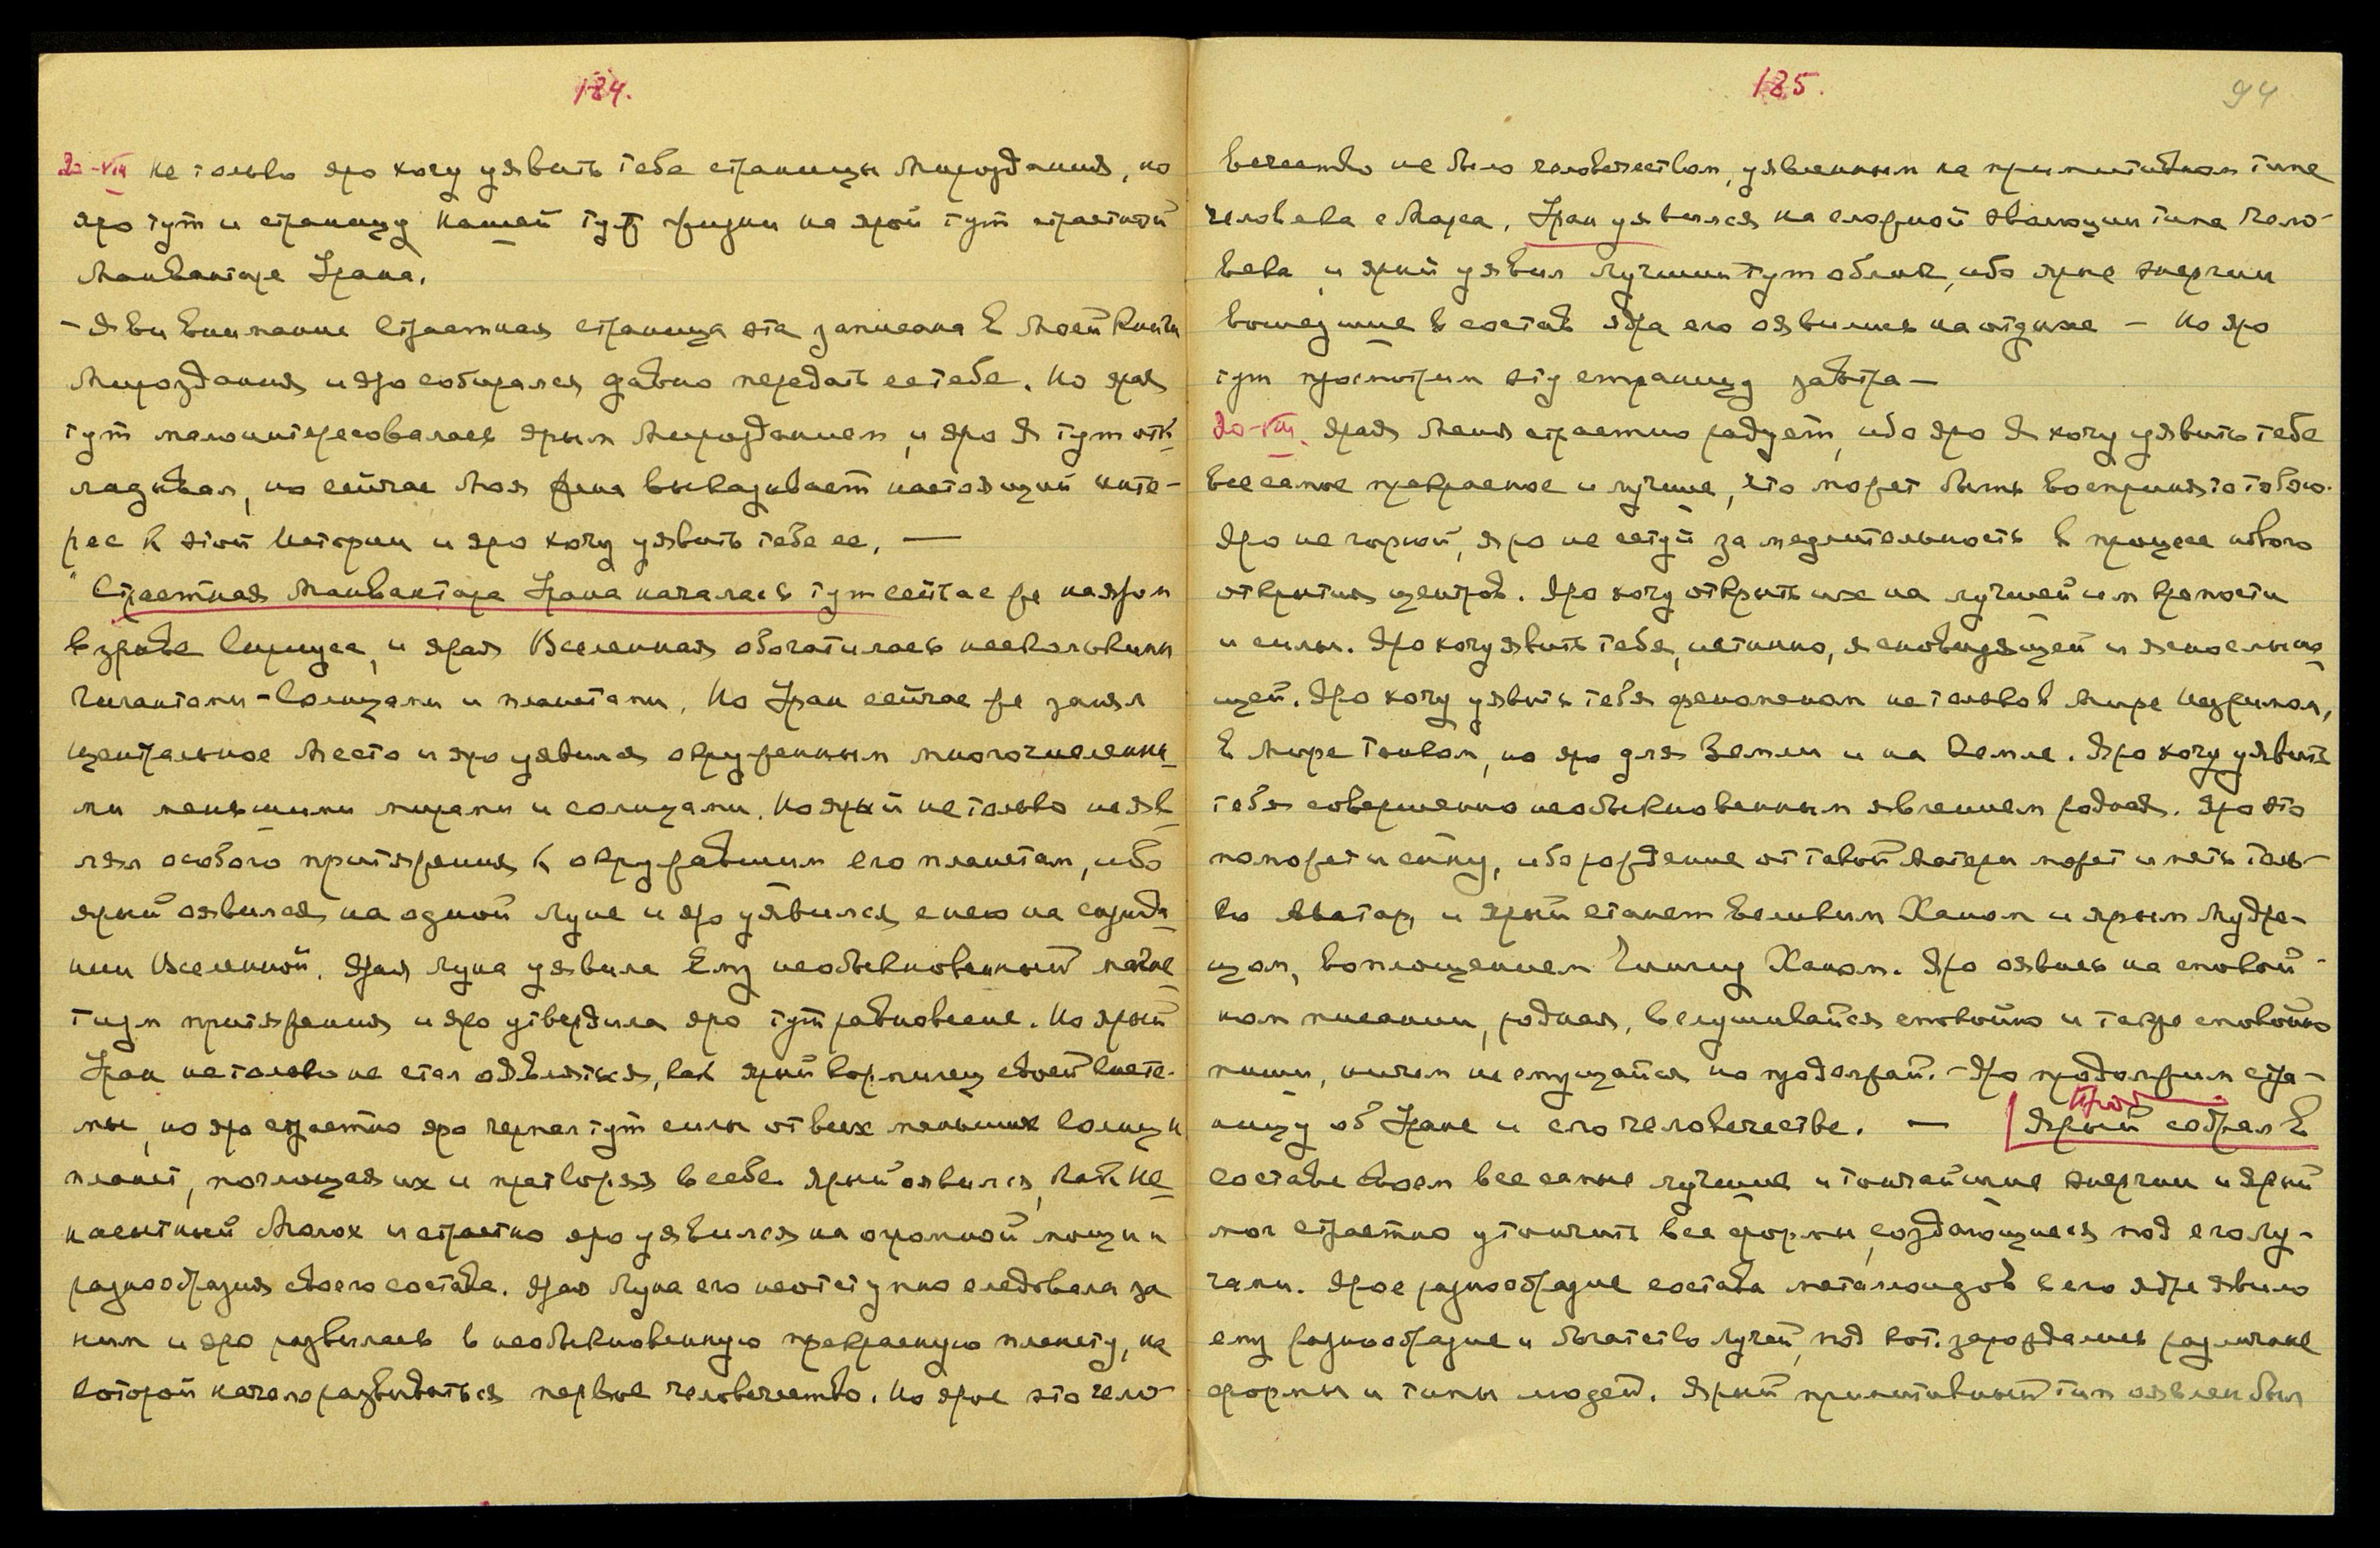 184.
20-VIII Не только яро хочу уявить тебе страницы Мироздания, но
яро тут и страницу нашей тут жизни на ярой тут страстной
Манвантаре Урана.
– Яви внимание Страстная страница эта записана в Моей Книги
Мироздания и яро собирался давно передать ее тебе. Но ярая
тут малоинтересовалась ярым Мирозданием, и яро Я тут отк
ладывал, но сейчас Моя Жена выказывает настоящий инте-
рес к этой Истории и яро хочу уявить тебе ее. —
"Страстная Манвантара Урана началась тут сейчас же на яром
взрыве Сириуса, и ярая Вселенная обогатилась несколькими
гигантами-Солнцами и планетами. Но Уран сейчас же занял
центральное место и яро уявился окруженным многочисленны-
ми меньшими мирами и солнцами. Но ярый не только не яв
лял особого притяжения к окружавшим его планетам, ибо
ярый оявился на одной Луне и яро уявился с нею на созида
нии Вселенной. Ярая Луна уявила Ему необыкновенный магне
тизм притяжения и яро утвердила яро тут равновесие. Но ярый
Уран не только не стал оявляться, как ярый кормилец своей систе-
мы, но яро страстно яро черпал тут силы от всех меньших солнц и
планет, поглощая их и претворяя в себе. Ярый оявился, как не
насытный Молох и страстно яро уявился на огромной мощи и
разнообразия своего состава. Ярая Луна его неотступно следовала за
ним и яро развилась в необыкновенную прекрасную планету, на
которой начало развиваться первое человечество. Но ярое это чело-
185.
94
вечество не было человечеством, уявленным на примитивном типе
человека с Марса. Уран уявился на сложной эволюции типа чело-
века, и ярый уявил лучший тут облик, ибо ярые энергии
вошедшие в состав ядра его оявились на отдыхе – Но яро
тут просмотрим эту страницу завтра –
20-VIII. Ярая Меня страстно радует, ибо яро Я хочу уявить тебе
все самое прекрасное и лучшее, что может быть воспринято тобою.
Яро не горюй, яро не сетуй за медлительность в процессе нового
открытия центров. Яро хочу открыть их на лучшей им крепости
и силы. Яро хочу явить тебя, истинно, ясновидящей и яснослыша
щей. Яро хочу уявить тебя феноменом не только в Мире Незримом,
в Мире Тонком, но яро для Земли и на Земле. Яро хочу уявить
тебя совершенно необыкновенным явлением родная. Яро это
поможет и сыну, ибо рождение от такой Матери может иметь толь-
ко Аватар, и ярый станет Великим Ханом и ярым Мудре-
цом, воплощением Чингиз Ханом. Яро оявись на спокой-
ном писании, родная, вслушивайся спокойно и также спокойно
пиши, ничем не смущайся но продолжай. – Яро продолжим стра-
ницу об Уране и его человечестве. — Ярый собрал в
составе своем все самые лучшие и тончайшие энергии и ярый
мог страстно утончить все формы, создающиеся под его лу-
чами. Ярое разнообразие состава металлоидов в его ядре явило
ему разнообразие и богатство лучей, под кот. зарождались различные
формы и типы людей. Ярый примитивный тип оявлен был